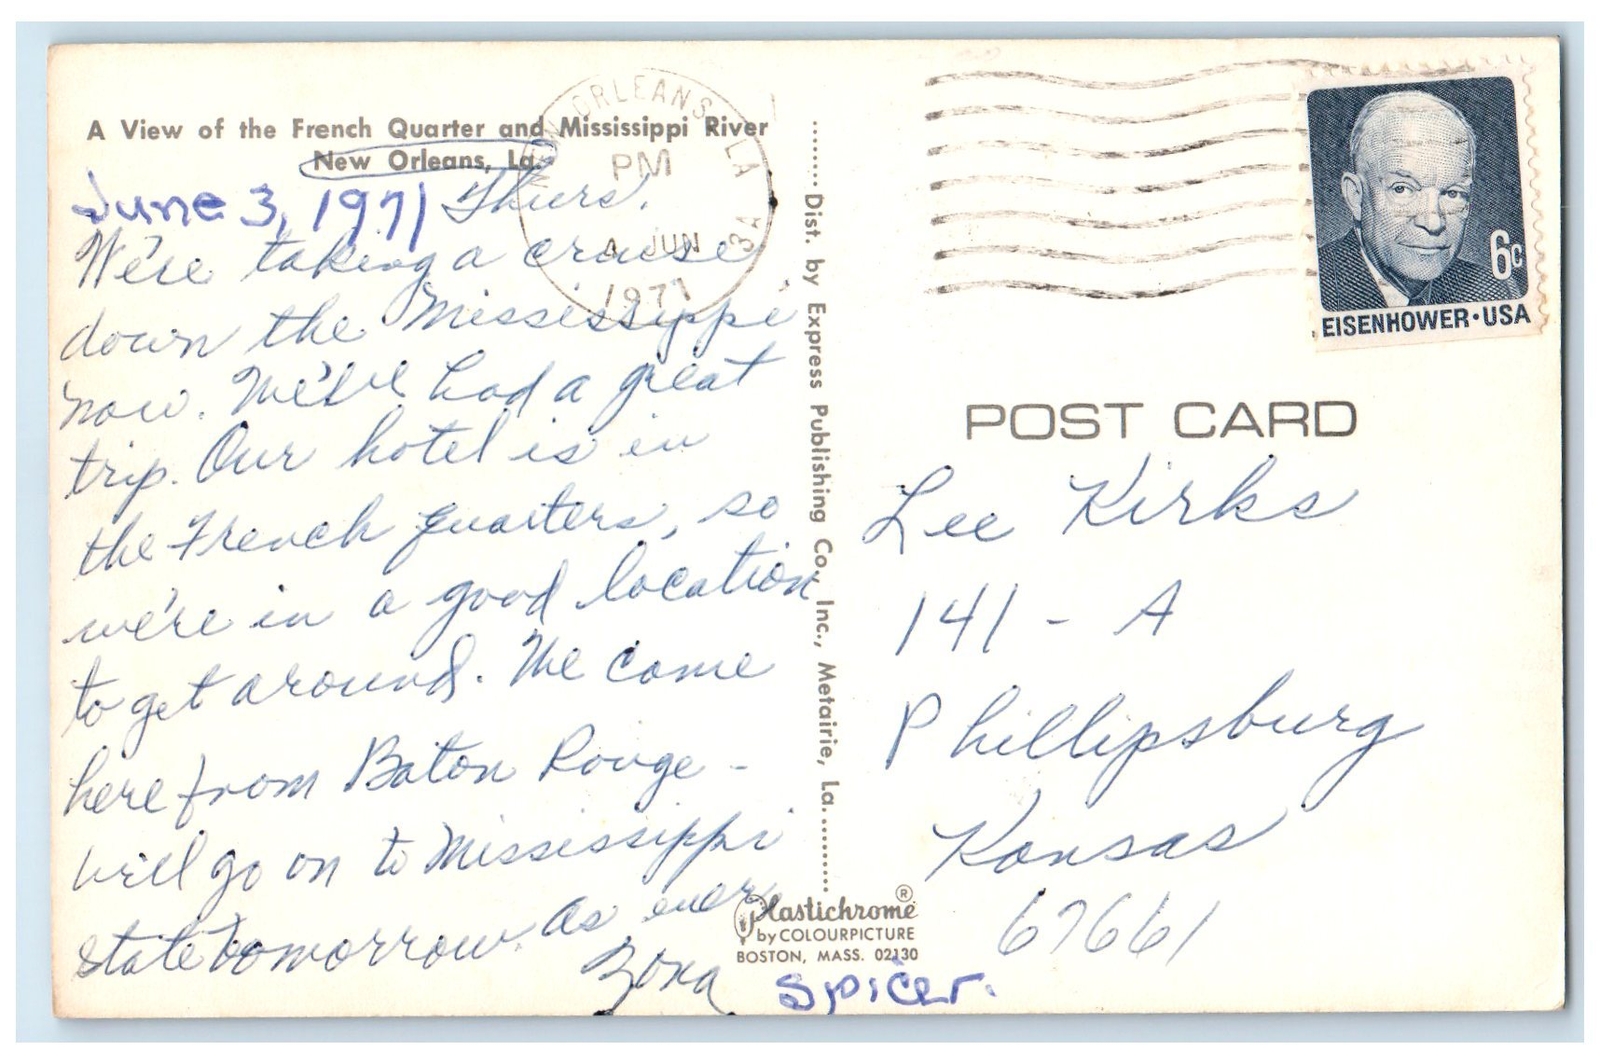 A View of the French Quarter and Mississippi River
New Orleans, La.
June 3, 1971 Thurs.
We're taking a cruise
down the Mississippi
now. We've had a great
trip. Our hotel is in
the French quarters, so
we're in a good location
to get around. We came
here from Baton Rouge -
will go on to Mississippi
state tomorrow. As ever
Zona Spicer.
NEW ORLEANS, LA
PM
4 JUN
1971
Dist. by Express Publishing Co., Inc., Metairie, La.
Plastichrome®
by COLOURPICTURE
BOSTON, MASS. 02130
6c
EISENHOWER·USA
POST CARD
Lee Kirks
141 - A
Phillipsburg
Kansas
67661